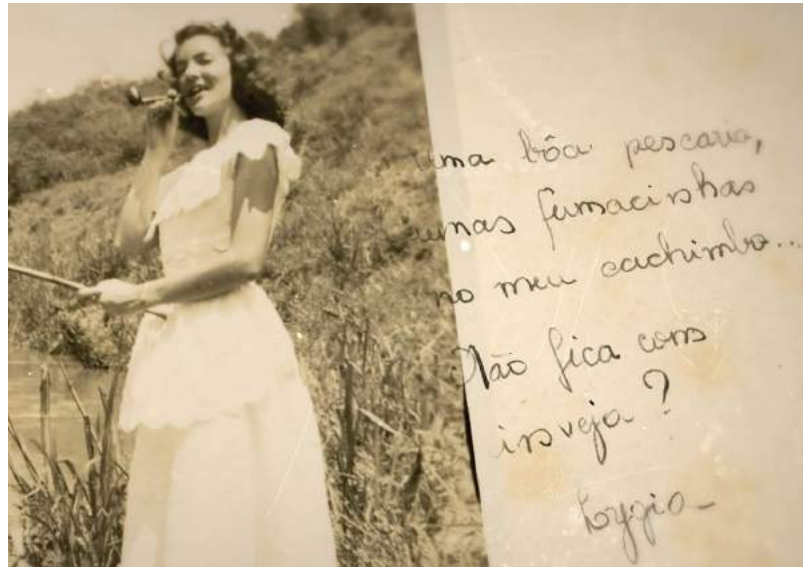 uma bôa pescaria,
umas fumacinhas
no meu cachimbo...
Não fica com
inveja?
Lygia